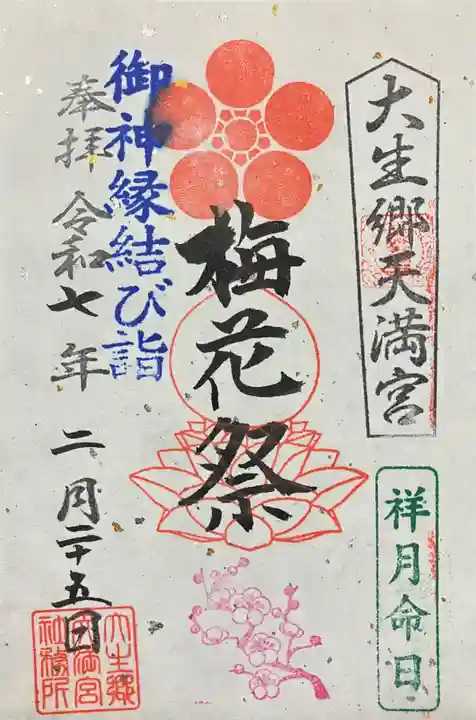 大生郷天満宮
祥月命日
梅花祭
御神縁結び詣
奉拝 令和七年
二月二十五日
大生郷
天満宮
神務所